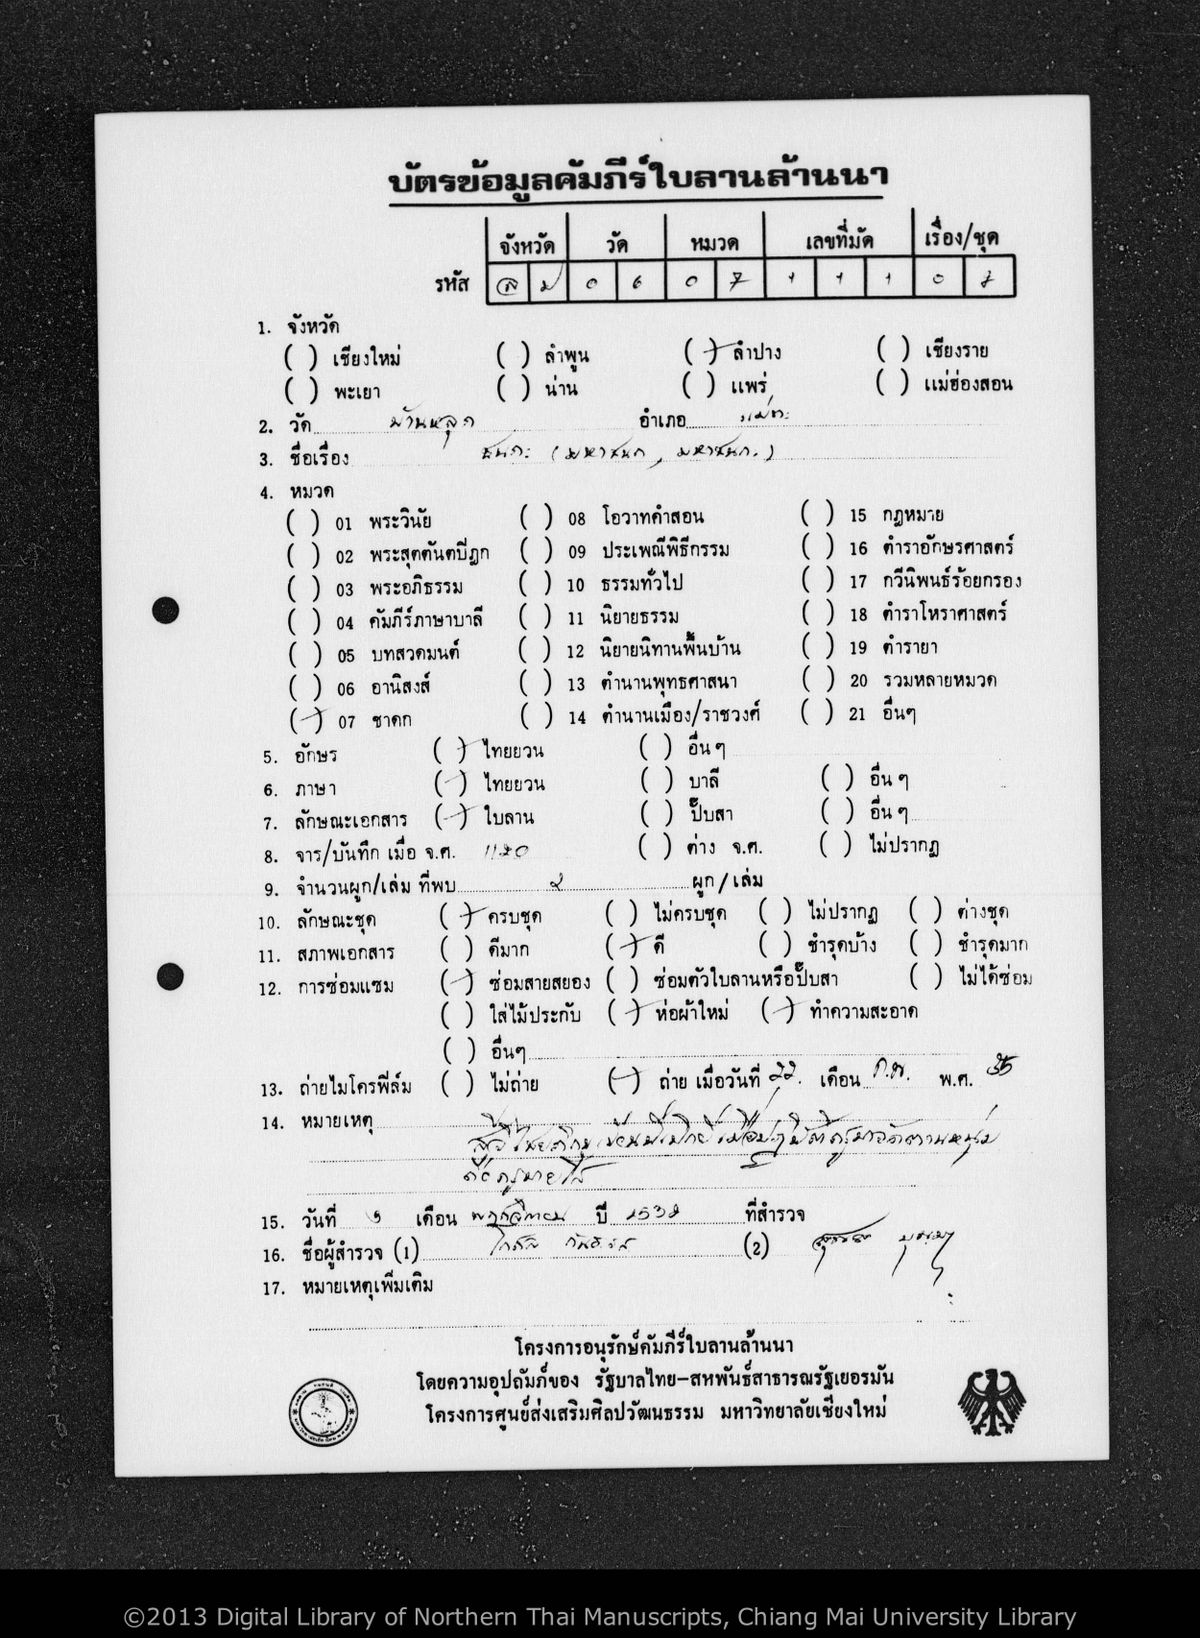 บัตรข้อมูลคัมภีร์ใบลานล้านนา
จังหวัด วัด หมวด เลขที่มัด เรื่อง/ชุด
รหัส ลป 0 6 0 7 1 1 1 0
1. จังหวัด
( ) เชียงใหม่ ( ) ลำพูน (/) ลำปาง ( ) เชียงราย
( ) พะเยา ( ) น่าน ( ) แพร่ ( ) แม่ฮ่องสอน
2. วัด บ้านหลุก อำเภอ แม่ทะ
3. ชื่อเรื่อง ชนกะ (มหาชนก, มหาชนกะ)
4. หมวด
( ) 01 พระวินัย ( ) 08 โอวาทคำสอน ( ) 15 กฎหมาย
( ) 02 พระสุตตันตปิฎก ( ) 09 ประเพณีพิธีกรรม ( ) 16 ตำราอักษรศาสตร์
( ) 03 พระอภิธรรม ( ) 10 ธรรมทั่วไป ( ) 17 กวีนิพนธ์ร้อยกรอง
( ) 04 คัมภีร์ภาษาบาลี ( ) 11 นิยายธรรม ( ) 18 ตำราโหราศาสตร์
( ) 05 บทสวดมนต์ ( ) 12 นิยายนิทานพื้นบ้าน ( ) 19 ตำรายา
( ) 06 อานิสงส์ ( ) 13 ตำนานพุทธศาสนา ( ) 20 รวมหลายหมวด
(/) 07 ชาดก ( ) 14 ตำนานเมือง/ราชวงศ์ ( ) 21 อื่นๆ
5. อักษร (/) ไทยยวน ( ) อื่นๆ
6. ภาษา (/) ไทยยวน ( ) บาลี ( ) อื่นๆ
7. ลักษณะเอกสาร (/) ใบลาน ( ) ปั๊บสา ( ) อื่นๆ
8. จาร/บันทึก เมื่อ จ.ศ. ( ) ต่าง จ.ศ. ( ) ไม่ปรากฏ
9. จำนวนผูก/เล่ม ที่พบ ผูก/เล่ม
10. ลักษณะชุด (/) ครบชุด ( ) ไม่ครบชุด ( ) ไม่ปรากฏ ( ) ต่างชุด
11. สภาพเอกสาร ( ) ดีมาก (/) ดี ( ) ชำรุดบ้าง ( ) ชำรุดมาก
12. การซ่อมแซม (/) ซ่อมสายสยอง ( ) ซ่อมตัวใบลานหรือปั๊บสา ( ) ไม่ได้ซ่อม
( ) ใส่ไม้ประกับ (/) ห่อผ้าใหม่ (/) ทำความสะอาด
( ) อื่นๆ
13. ถ่ายไมโครฟิล์ม ( ) ไม่ถ่าย (/) ถ่าย เมื่อวันที่ 22 เดือน ก.พ. พ.ศ. 35
14. หมายเหตุ
15. วันที่ เดือน พฤศจิกายน ปี ที่สำรวจ
16. ชื่อผู้สำรวจ (1) (2)
17. หมายเหตุเพิ่มเติม
โครงการอนุรักษ์คัมภีร์ใบลานล้านนา
โดยความอุปถัมภ์ของ รัฐบาลไทย-สหพันธ์สาธารณรัฐเยอรมัน
โครงการศูนย์ส่งเสริมศิลปวัฒนธรรม มหาวิทยาลัยเชียงใหม่
©2013 Digital Library of Northern Thai Manuscripts, Chiang Mai University Library